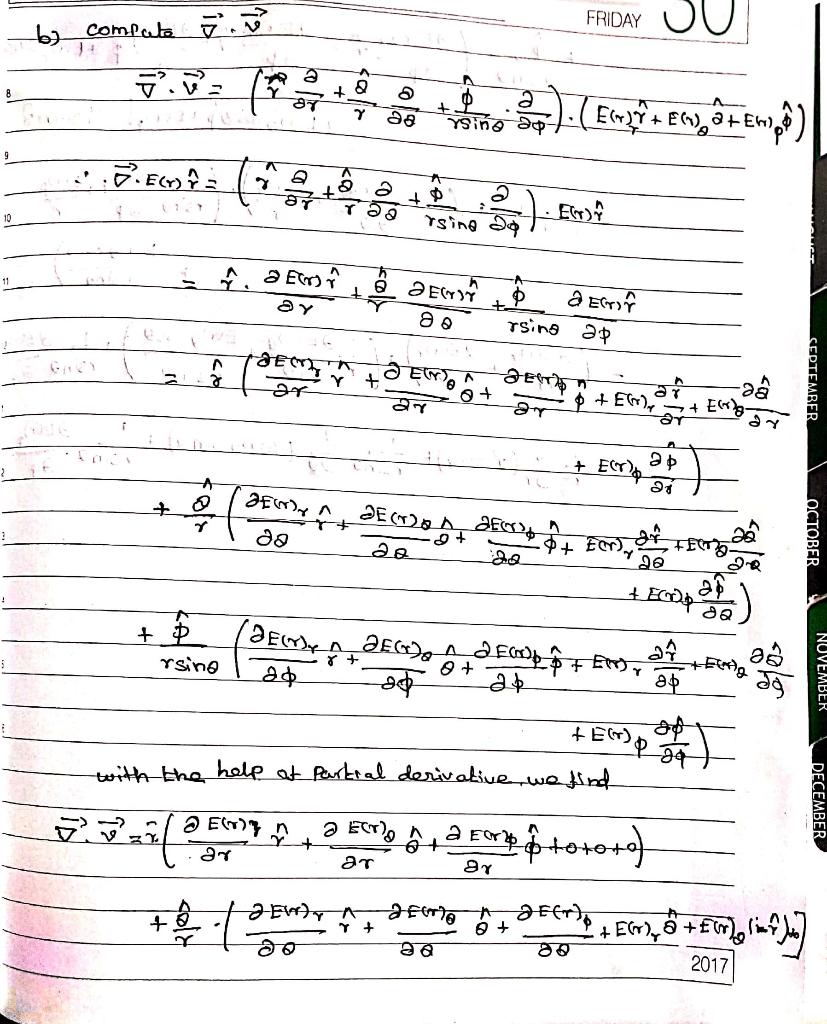 FRIDAY 30
b) compute ∇⃗ . v⃗
8 ∇⃗ . v⃗ = ( r̂ ∂/∂r + θ̂/r ∂/∂θ + φ̂/(r sinθ) . ∂/∂φ ) . ( E(r)_r r̂ + E(r)_θ θ̂ + E(r)_φ φ̂ )
9
∴ ∇⃗ . E(r) r̂ = ( r̂ ∂/∂r + θ̂/r ∂/∂θ + φ̂/(r sinθ) . ∂/∂φ ) . E(r) r̂
10
11 = r̂ . ∂E(r) r̂/∂r + θ̂/r ∂E(r) r̂/∂θ + φ̂/(r sinθ) ∂E(r) r̂/∂φ
= r̂ ( ∂E(r)_r/∂r r̂ + ∂E(r)_θ/∂r θ̂ + ∂E(r)_φ/∂r φ̂ + E(r)_r ∂r̂/∂r + E(r)_θ ∂θ̂/∂r
+ E(r)_φ ∂φ̂/∂r )
+ θ̂/r ( ∂E(r)_r/∂θ r̂ + ∂E(r)_θ/∂θ θ̂ + ∂E(r)_φ/∂θ φ̂ + E(r)_r ∂r̂/∂θ + E(r)_θ ∂θ̂/∂θ
+ E(r)_φ ∂φ̂/∂θ )
+ φ̂/(r sinθ) ( ∂E(r)_r/∂φ r̂ + ∂E(r)_θ/∂φ θ̂ + ∂E(r)_φ/∂φ φ̂ + E(r)_r ∂r̂/∂φ + E(r)_θ ∂θ̂/∂φ
+ E(r)_φ ∂φ̂/∂φ )
with the help of Partial derivative, we find
∇⃗ . v⃗ = r̂ ( ∂E(r)_r/∂r r̂ + ∂E(r)_θ/∂r θ̂ + ∂E(r)_φ/∂r φ̂ + 0 + 0 + 0 )
+ θ̂/r . ( ∂E(r)_r/∂θ r̂ + ∂E(r)_θ/∂θ θ̂ + ∂E(r)_φ/∂θ + E(r)_r θ̂ + E(r)_θ
2017
SEPTEMBER
OCTOBER
NOVEMBER
DECEMBER